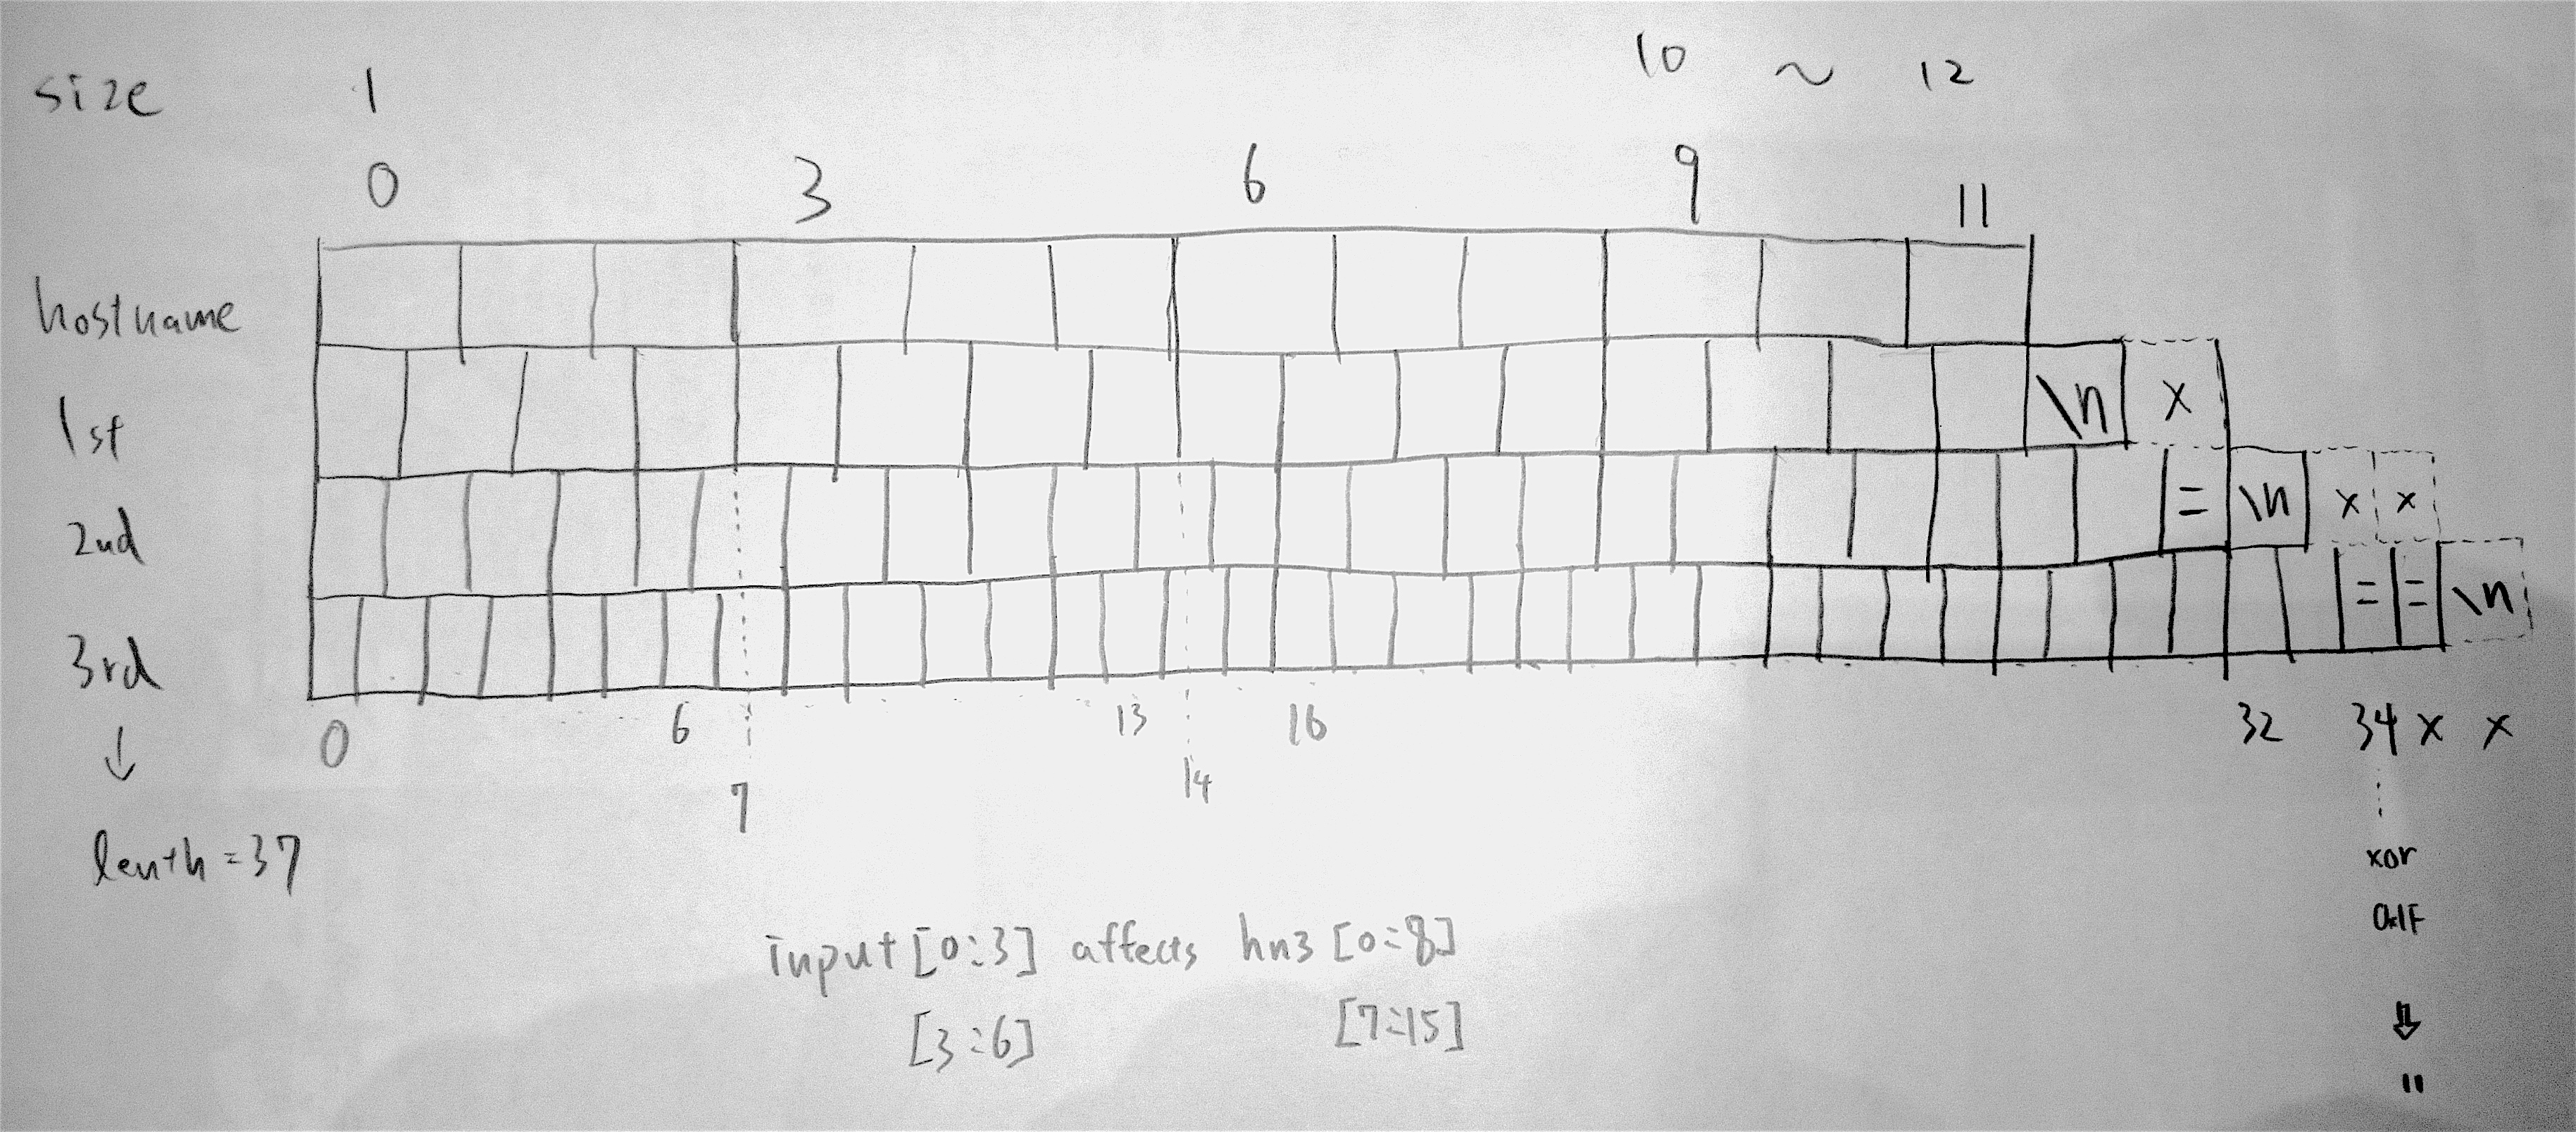 size 1 10 ~ 12
0 3 6 9 11
hostname
1st \n x
2nd = \n x x
3rd = = \n
0 6 13 16 32 34 x x
↓ 7 14
lenth = 37
xor
0x1F
input [0:3] affects hn3 [0:8]
[3:6] [7:15]
⇓
"